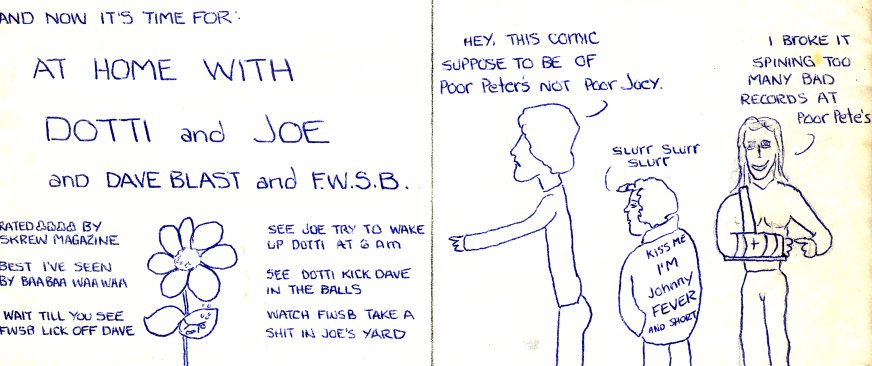 AND NOW IT'S TIME FOR:
AT HOME WITH
DOTTI and JOE
and DAVE BLAST and F.W.S.B.
RATED BY
SKREW MAGAZINE
BEST I'VE SEEN
BY BAABAA WAAWAA
WAIT TILL YOU SEE
FWSB LICK OFF DAVE
SEE JOE TRY TO WAKE
UP DOTTI AT 6 AM
SEE DOTTI KICK DAVE
IN THE BALLS
WATCH FWSB TAKE A
SHIT IN JOE'S YARD
HEY, THIS COMIC
SUPPOSE TO BE OF
Poor Peter's NOT Poor Joey.
SLURR SLURR
SLURR
KISS ME
I'M
Johnny
FEVER
AND SHORT
I BROKE IT
SPINING TOO
MANY BAD
RECORDS AT
Poor Pete's